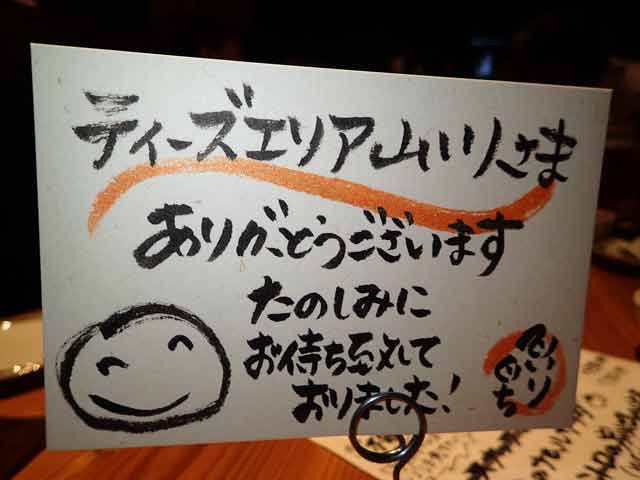 ティーズエリア山川さま
ありがとうございます
たのしみに
お待ち致して
おりました!